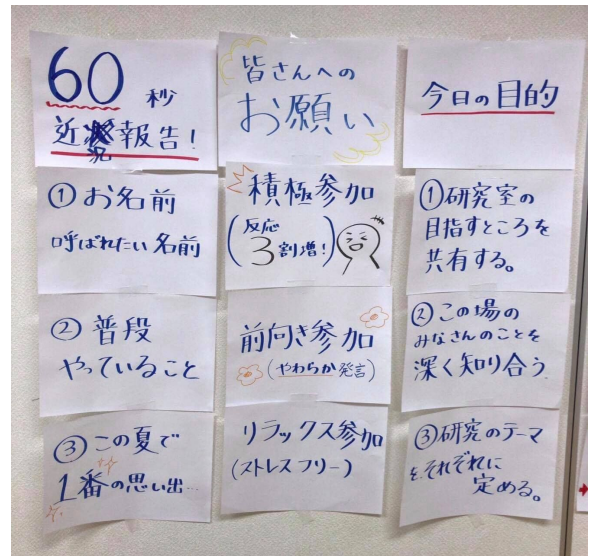 60 秒
近況報告!
① お名前
呼ばれたい 名前
② 普段
やっていること
③ この夏で
1番の思い出…
皆さんへの
お願い
積極参加
(反応
3割増!)
前向き参加
(やわらか発言)
リラックス参加
(ストレスフリー)
今日の目的
①研究室の
目指すところを
共有する。
② この場の
みなさんのことを
深く知り合う
③研究のテーマ
を、それぞれに
定める。